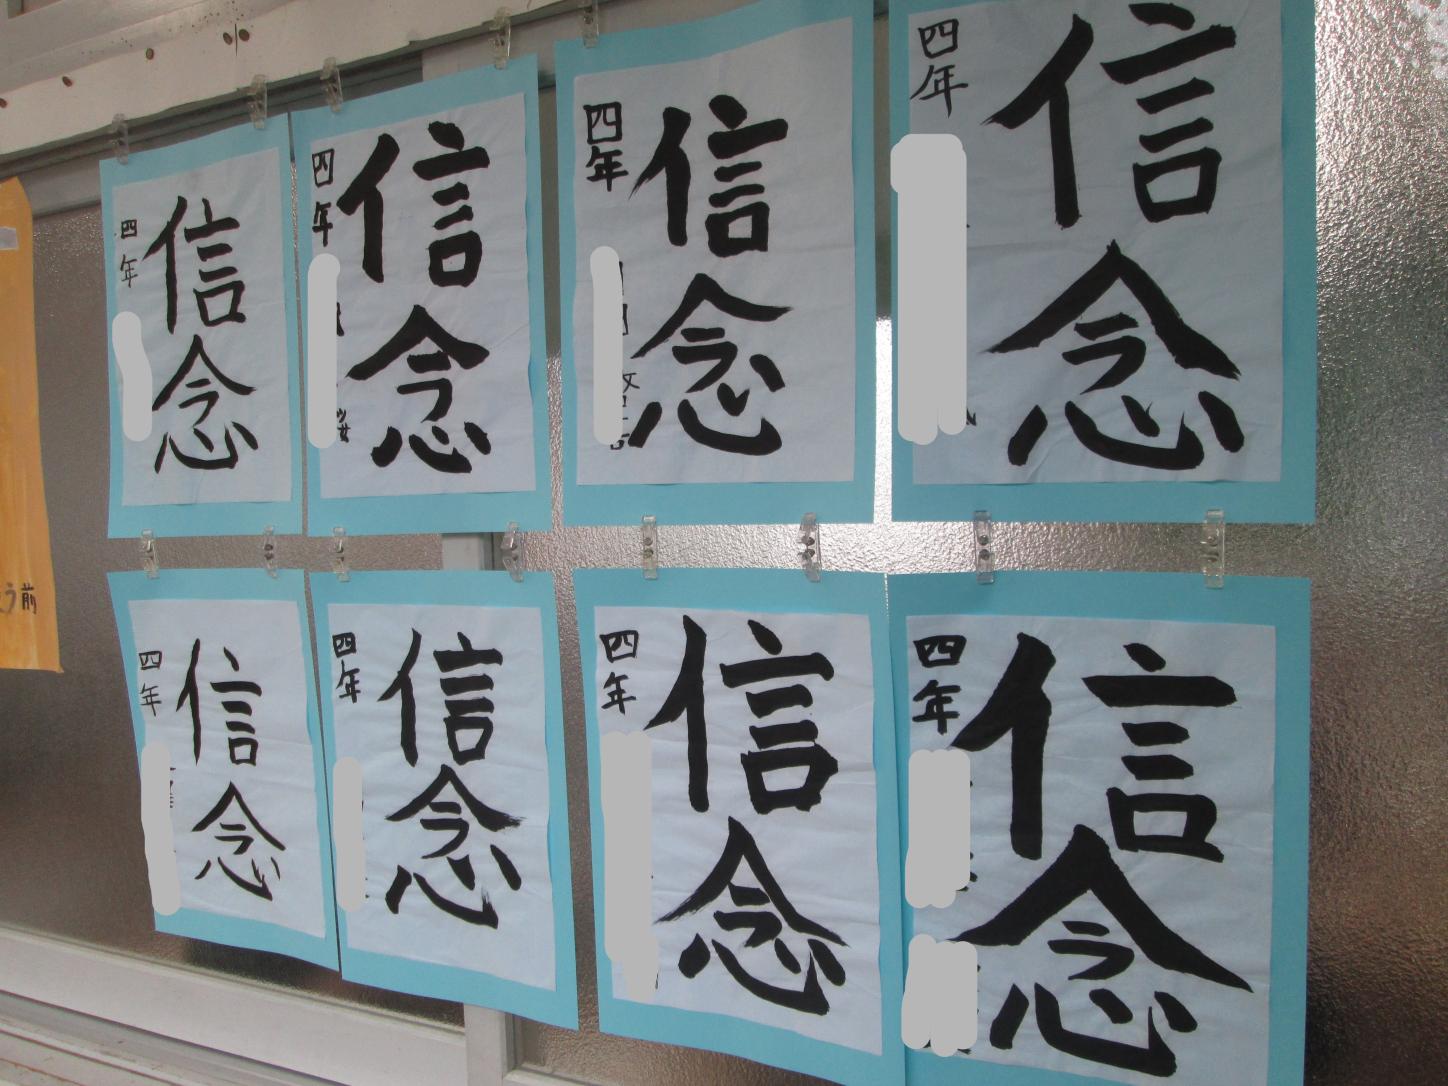 四年
信念
四年
信念
四年
信念
四年
信念
四年
信念
四年
信念
四年
信念
四年
信念
前